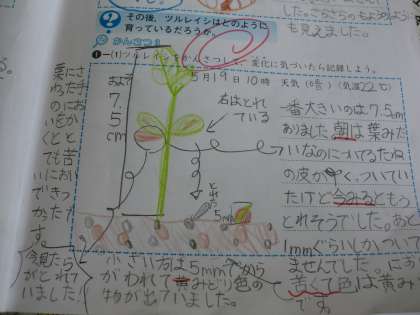 その後、ツルレイシはどのように
育っているだろうか。
かんさつ1
1-(1)ツルレイシをかんさつし、変化に気づいたら記録しよう。
5月19日10時 天気(晴)(気温22℃)
およそ
7.
5
cm
右はとれ
ている
とれた
5mm
一番大きいのは7.5cm
ありました朝は葉みた
いなのについてるたね
の皮が
たけど今みるともう
とれそうでした。あと
1mmぐらいしかついて
ませんでした。にお
苦くて色は黄み
です
葉にさ
わった手
のにお
いをか
くと
ても苦
いにおい
できつ
かったで
す。
今見たら
がとれて
いました!
小さい方は5mmでから
がわれて黄みどり色の
物が出ていました。
も見えました。